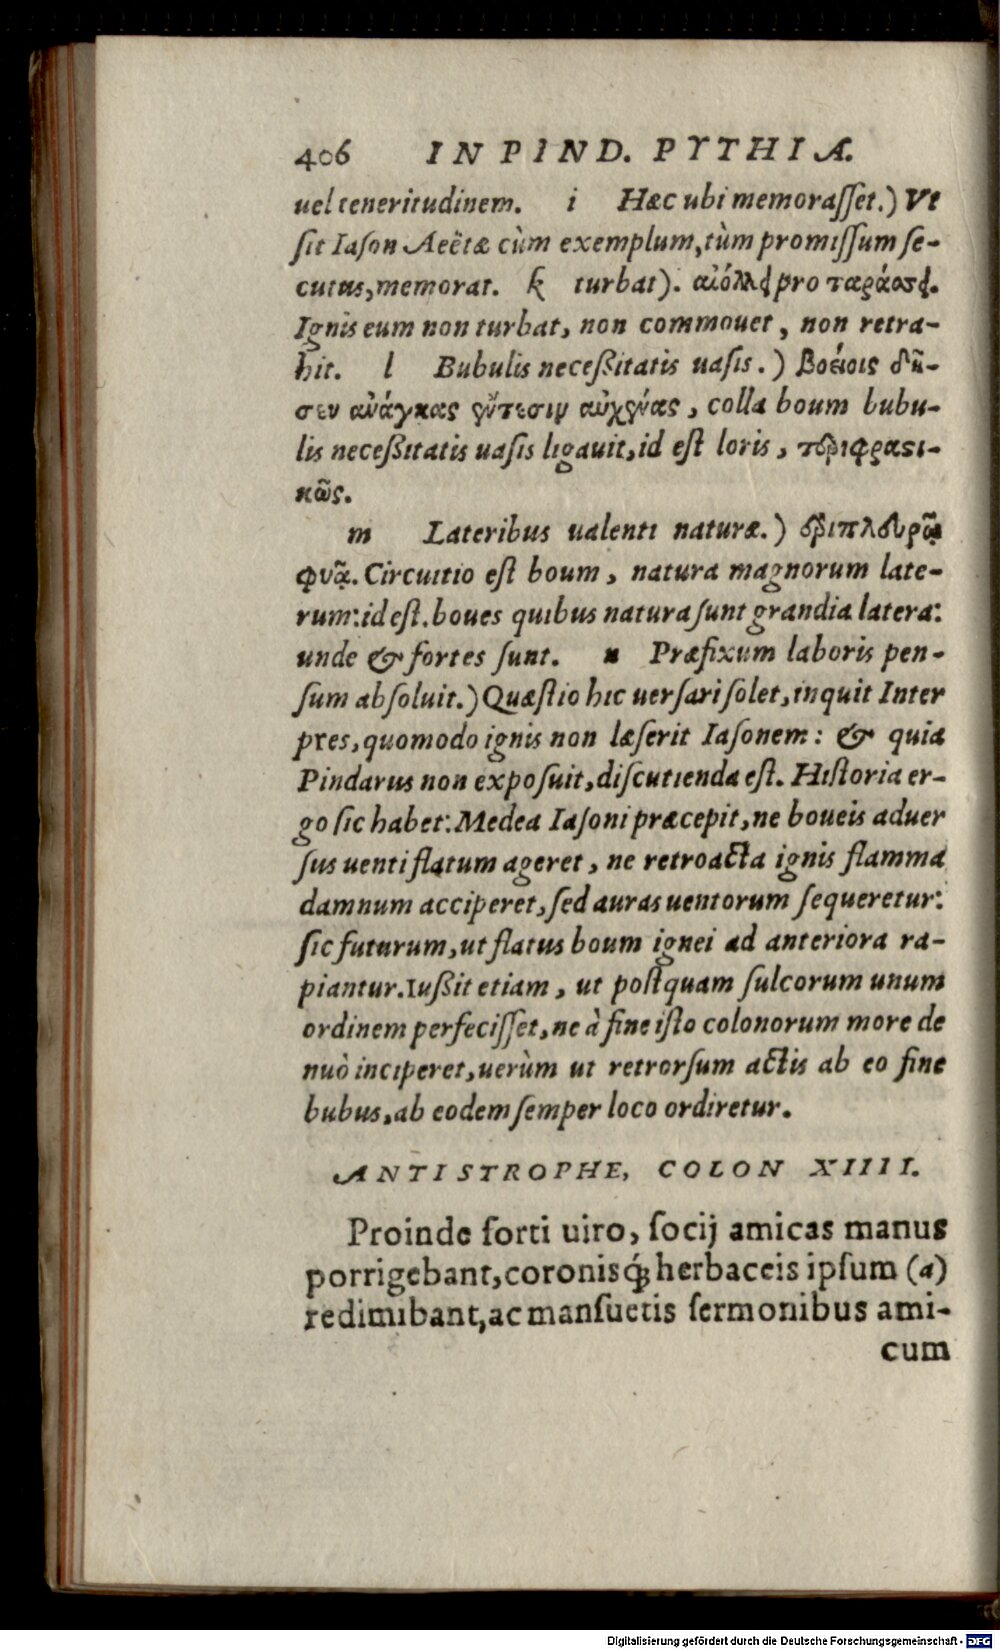 406 IN PIND. PYTHIA.
uel teneritudinem. i Hæc ubi memorasset.) Vt
sit Iason Aeëtæ cùm exemplum, tùm promissum se-
cutus, memorat. k turbat). αἰόλλει pro ταράσσει.
Ignis eum non turbat, non commouet, non retra-
hit. l Bubulis neceßitatis uasis.) βοέοις δῆ-
σεν ἀνάγκας ἔντεσιν αὐχένας, colla boum bubu-
lis neceßitatis uasis ligauit, id est loris, περιφρασι-
κῶς.
m Lateribus ualenti naturæ.) ἐριπλεύρῳ
φυᾷ. Circuitio est boum, natura magnorum late-
rum: id est. boues quibus natura sunt grandia latera:
unde & fortes sunt. n Præfixum laboris pen-
sum absoluit.) Quæstio hic uersari solet, inquit Inter
pres, quomodo ignis non læserit Iasonem: & quia
Pindarus non exposuit, discutienda est. Historia er-
go sic habet: Medea Iasoni præcepit, ne boueis aduer
sus uenti flatum ageret, ne retroacta ignis flamma
damnum acciperet, sed auras uentorum sequeretur:
sic futurum, ut flatus boum ignei ad anteriora ra-
piantur. Iußit etiam, ut postquam sulcorum unum
ordinem perfecisset, ne à fine isto colonorum more de
nuò inciperet, uerùm ut retrorsum actis ab eo fine
bubus, ab eodem semper loco ordiretur.
ANTISTROPHE, COLON XIIII.
Proinde forti uiro, socij amicas manus
porrigebant, coronisq́; herbaceis ipsum (a)
redimibant, ac mansuetis sermonibus ami-
cum
Digitalisierung gefördert durch die Deutsche Forschungsgemeinschaft - DFG